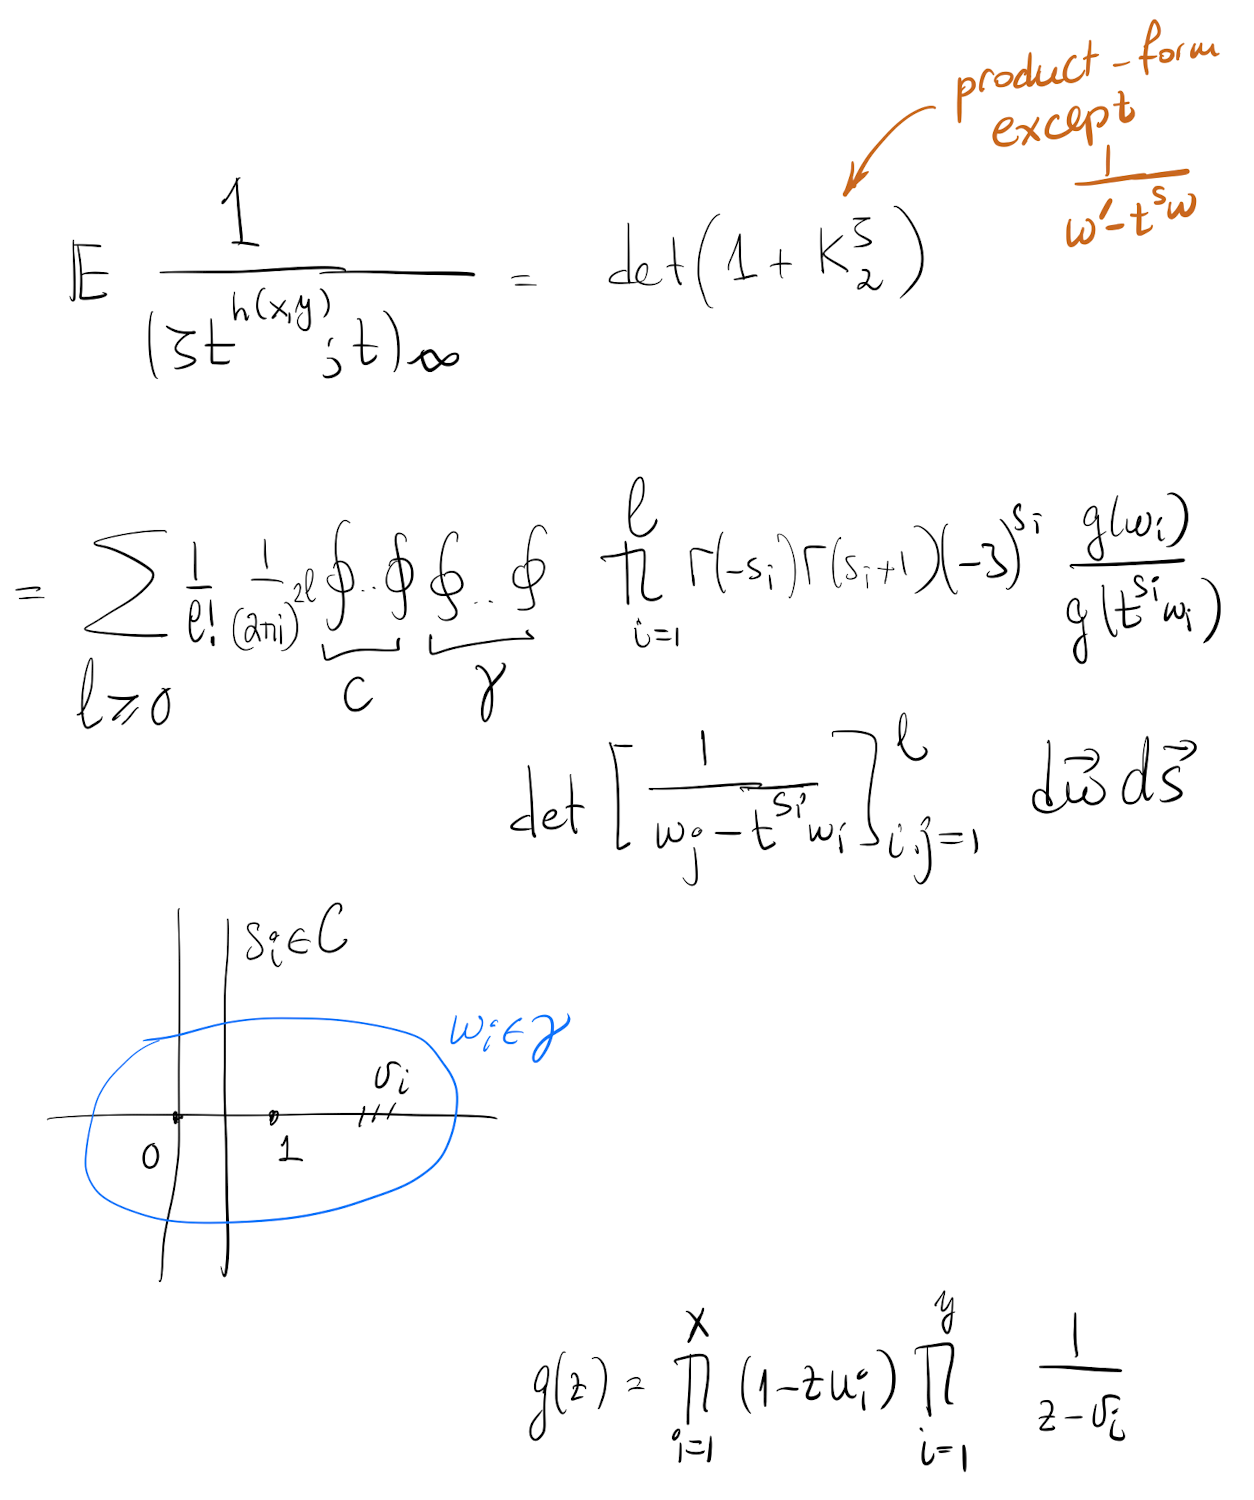 product-form
except
1/(w'-t^s w)
𝔼 1/(ζt^{h(x,y)};t)_∞ = det(1+K_2^ζ)
= Σ_{ℓ≥0} 1/ℓ! 1/(2πi)^{2ℓ} ∮..∮_C ∮..∮_γ ∏_{i=1}^ℓ Γ(-s_i)Γ(s_i+1)(-ζ)^{s_i} g(w_i)/g(t^{s_i}w_i)
det[1/(w_j-t^{s_i}w_i)]_{i,j=1}^ℓ dw⃗ ds⃗
s_i∈C
w_i∈γ
v_i
0 1
g(z) = ∏_{i=1}^x (1-zu_i) ∏_{i=1}^y 1/(z-v_i)